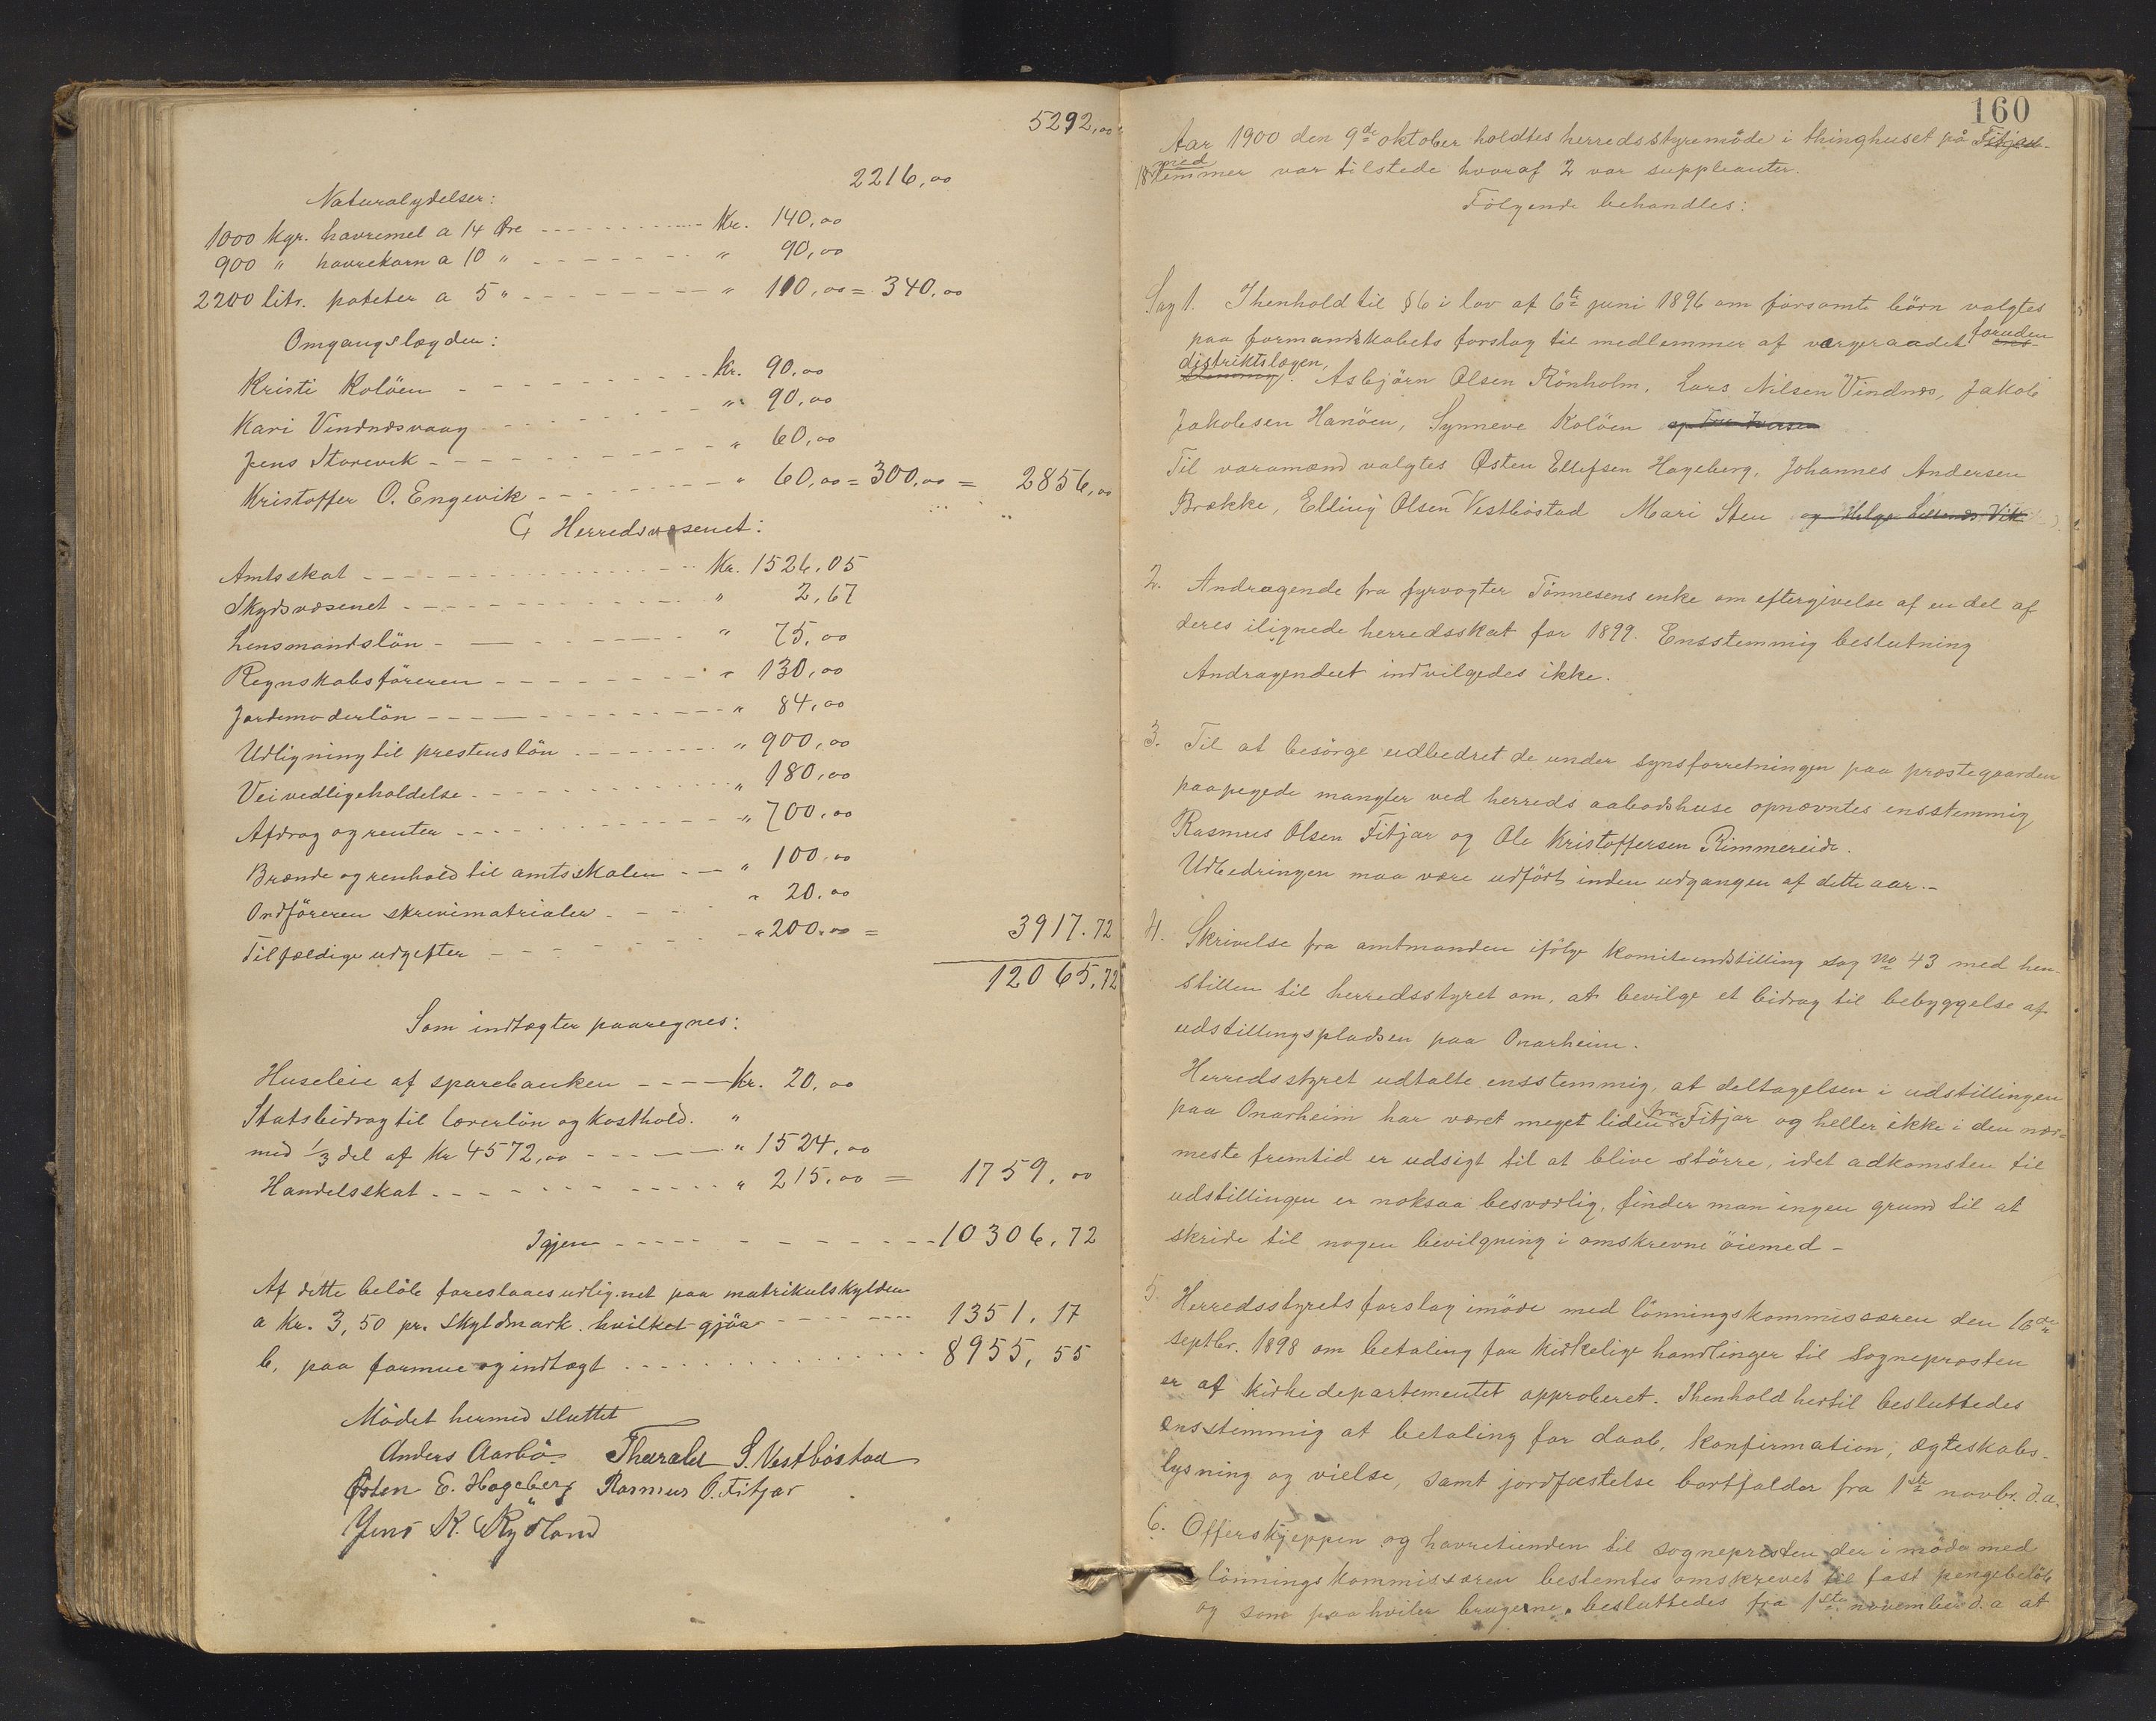 5292,00
2216,00
Naturalydelser:
1000 kgr. havremel a 14 Øre - - - Kr. 140,00
900 " havrekorn a 10 " - - - " 90,00
2200 litr. poteter a 5 " - - - " 110,00 = 340,00
Omgangslægden:
Kristi Kolöen - - - Kr. 90,00
Kari Vindnæsvaag - - - " 90,00
Jens Storevik - - - " 60,00
Kristoffer O. Engevik - - - " 60,00 = 300,00 = 2856,00
C, Herredsvæsenet:
Amtsskat - - - Kr. 1526,05
Skydsvæsenet - - - " 2,67
Lensmandslön - - - " 75,00
Regnskabsföreren - - - " 130,00
Jordemoderlön - - - " 84,00
Udligning til prestens lön - - - " 900,00
Veivedligeholdelse - - - " 180,00
Afdrag og renter - - - " 700,00
Brænde og renhold til amtsskolen - - " 100,00
Ordföreren skrivimatrialer - - - " 20,00
Tilfældige udgifter - - - " 200,00 = 3917.72
12065,72
Som indtægter paaregnes:
Huseleie af sparebanken - - - Kr. 20,00
Statsbidrag til lærerlön og kosthold. "
med 1/3 del af Kr 4572,00 - - - " 1524,00
Handelsskat - - - " 215,00 = 1759,00
Igjen - - - 10306,72
Af dette belöb foreslaaes udlignet paa matrikulskylden
a Kr. 3,50 pr. Skyldmark. hvilket gjör - - - 1351,17
b, paa formue og indtægt - - - 8955,55
Mödet hermed sluttet
Anders Aarbö Thorald S. Vestböstad
Østen E. Hageberg Rasmus O. Fitjar
Jens K. Rydland
160
Aar 1900 den 9de oktober holdtes herredsstyremöde i thinghuset på Fitjar
med
18 lemmer var tilstede hvoraf 2 var suppleanter.
Fölgende behandles:
Sag 1. Ihenhold til § 6 i lov af 6te juni 1896 om forsömte börn valgtes
paa formandskabets forslag til medlemmer af værgeraadet foruden
distriktslægen, Asbjörn Olsen Rönholm, Lars Nilsen Vindnæs, Jakob
Jakobsen Hanöen, Synneve Kolöen
Til varamænd valgtes Østen Ellefsen Hageberg, Johannes Andersen
Brække, Elling Olsen Vestböstad Mari Sten
2. Andragende fra fyrvogter Tönnesens enke om eftergivelse af en del af
deres ilignede herredsskat for 1899. Ensstemmig beslutning
Andragendeet indvilgedes ikke.
3. Til at besörge udbedret de under synsforretningen paa prestegaarden
paapegede mangler ved herreds aabodshuse opnævntes ensstemmig
Rasmus Olsen Fitjar og Ole Kristoffersen Rimmereide.
Udbedringen maa være udfört inden udgangen af dette aar.-
4. Skrivelse fra amtmanden ifölge komiteindstilling sag No 43 med hen-
stillen til herredsstyret om, at bevilge et bidrag til bebyggelse af
udstillingspladsen paa Onarheim.
Herredsstyret udtalte ensstemmig, at deltagelsen i udstillingen
paa Onarheim har været meget liden fra Fitjar og heller ikke i den nær-
meste fremtid er udsigt til at blive större, idet adkomsten til
udstillingen er noksaa besværlig, finder man ingen grund til at
skride til nogen bevilgning i omskrevne öiemed -
5. Herredsstyrets forslag i möde med lönningskommissæren den 16de
septbr. 1898 om betaling for kirkelige handlinger til Sognepresten
er af kirkedepartementet approberet. Ihenhold hertil besluttedes
ensstemmig at betaling for daab, konfirmation, ægteskabs-
lysning og vielse, samt jordfæstelse bortfalder fra 1ste novbr. d.a.
6. Offerskjeppen og havretienden til sognepresten der i möde med
lönningskommissæren bestemtes omskrevet til fast pengebelöb
og som paahviler brugerne, besluttedes fra 1ste november d.a at